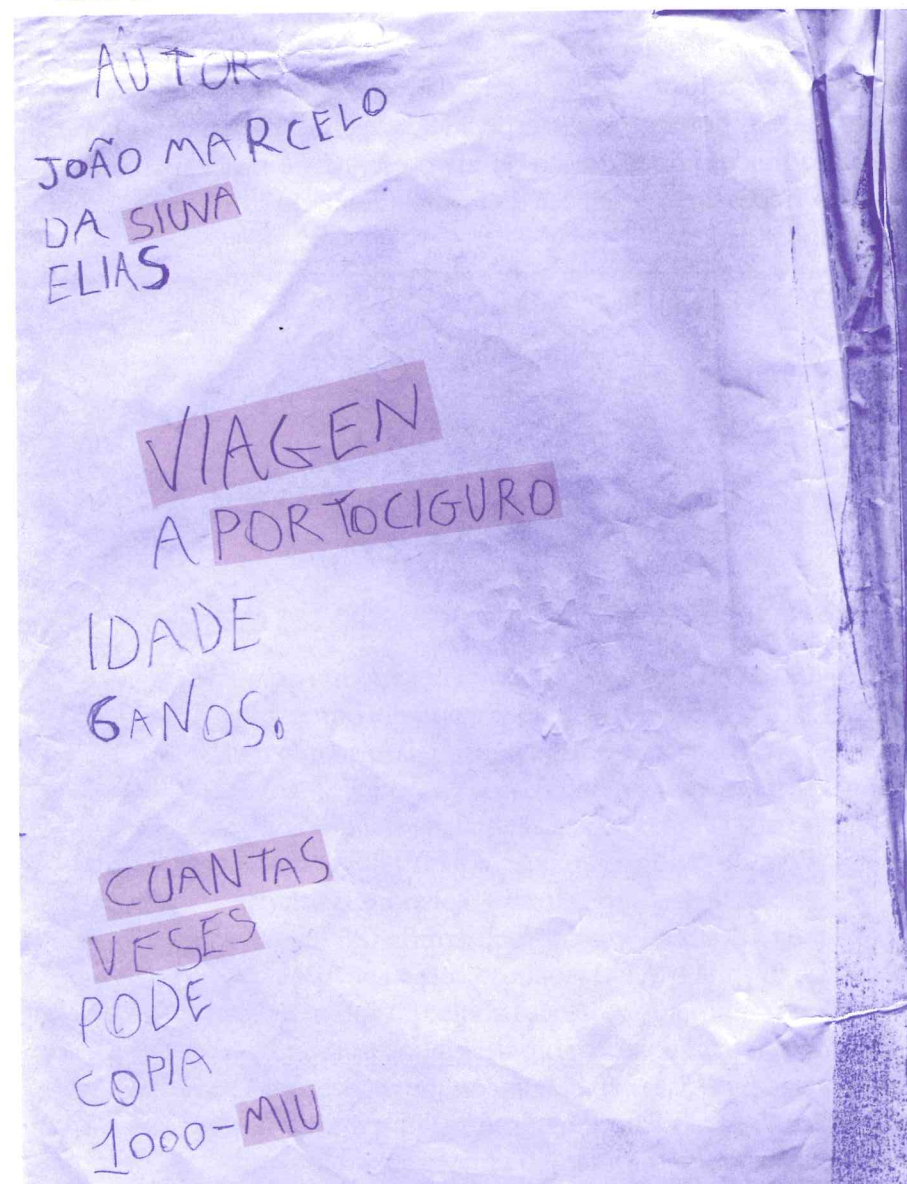 AUTOR
JOÃO MARCELO
DA SIUVA
ELIAS
VIAGEN
A PORTOCIGURO
IDADE
6 ANOS.
CUANTAS
VESES
PODE
COPIA
1000-MIU